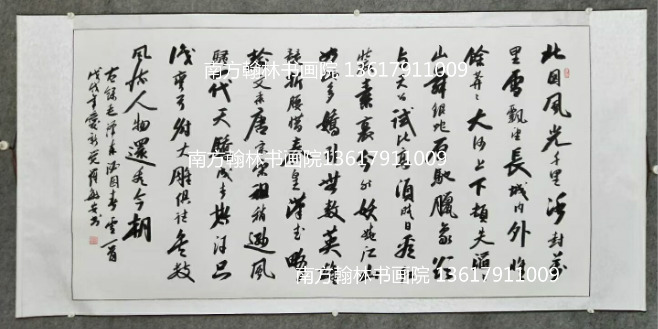 北国風光千里冰封萬
里雪飘望長城内外惟
餘莽々大河上下頓失滔
山舞银蛇原馳臘象欲
与天公试比高须晴日看红
装素裹分外妖娆江山
如此多嬌引無数英雄
競折腰惜秦皇漢武略
输文采唐宗宋祖稍逊風
騷代天驕成吉思汗只
識弯弓射大雕俱往矣数
風流人物還看今朝
右録毛泽東沁园春雪一首
戊戌年
南方翰林书画院 13617911009
南方翰林书画院13617911009
南方翰林书画院 13617911009